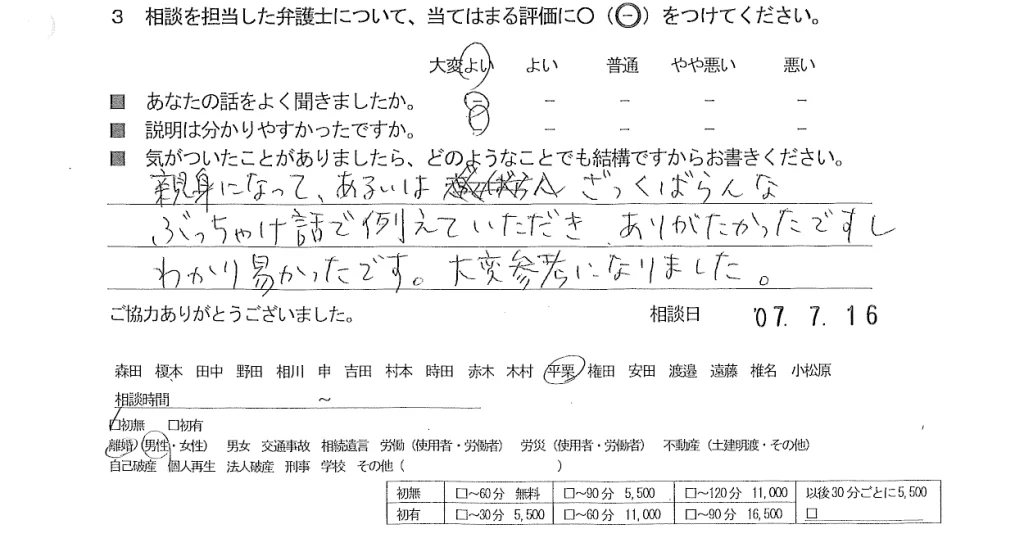 3 相談を担当した弁護士について、当てはまる評価に○(㊀)をつけてください。
大変よい よい 普通 やや悪い 悪い
■ あなたの話をよく聞きましたか。 － － － － －
■ 説明は分かりやすかったですか。 － － － － －
■ 気がついたことがありましたら、どのようなことでも結構ですからお書きください。
親身になって、あるいは ざっくばらんな
ぶっちゃけ話で例えていただき、ありがたかったですし
わかり易かったです。大変参考になりました。
ご協力ありがとうございました。 相談日 '07. 7. 16
森田 榎本 田中 野田 相川 申 吉田 村本 時田 赤木 木村 平栗 権田 安田 渡邉 遠藤 椎名 小松原
相談時間 ～
□初無 □初有
離婚 (男性・女性) 男女 交通事故 相続遺言 労働 (使用者・労働者) 労災 (使用者・労働者) 不動産 (土建明渡・その他)
自己破産 個人再生 法人破産 刑事 学校 その他 ( )
初無 □～60分 無料 □～90分 5,500 □～120分 11,000 以後30分ごとに5,500
初有 □～30分 5,500 □～60分 11,000 □～90分 16,500 □